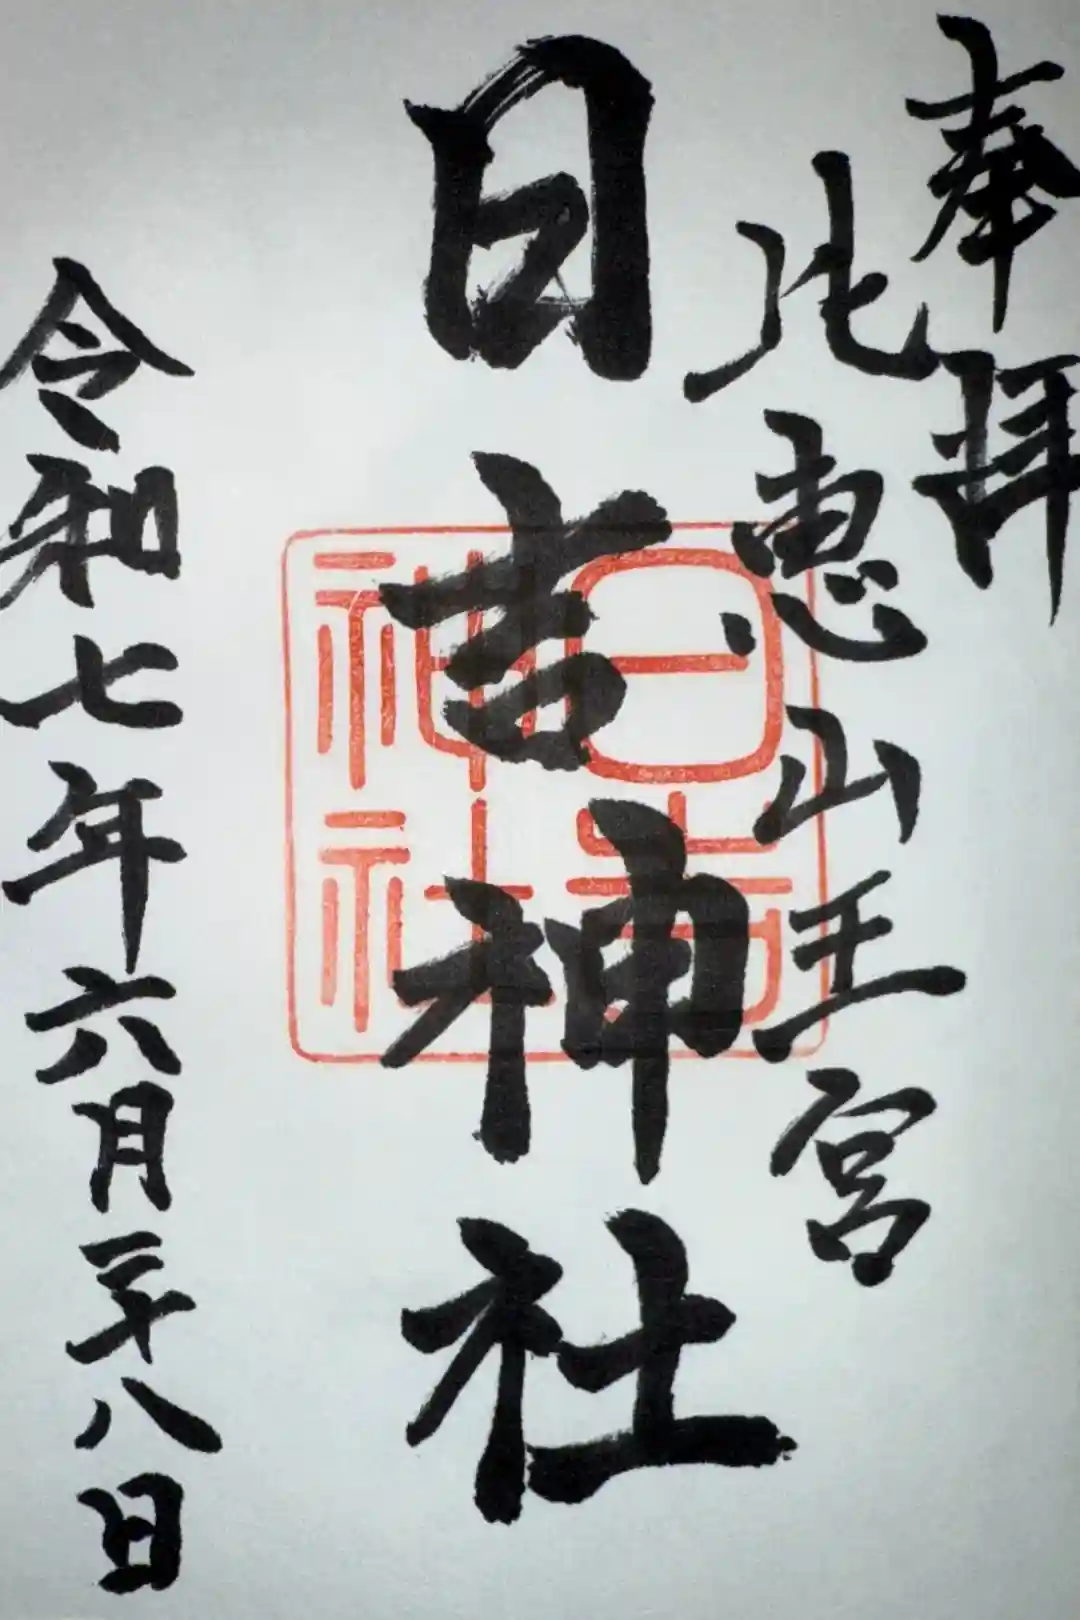 奉拝
比恵山王宮
日吉神社
日吉
神社
令和七年六月二十八日